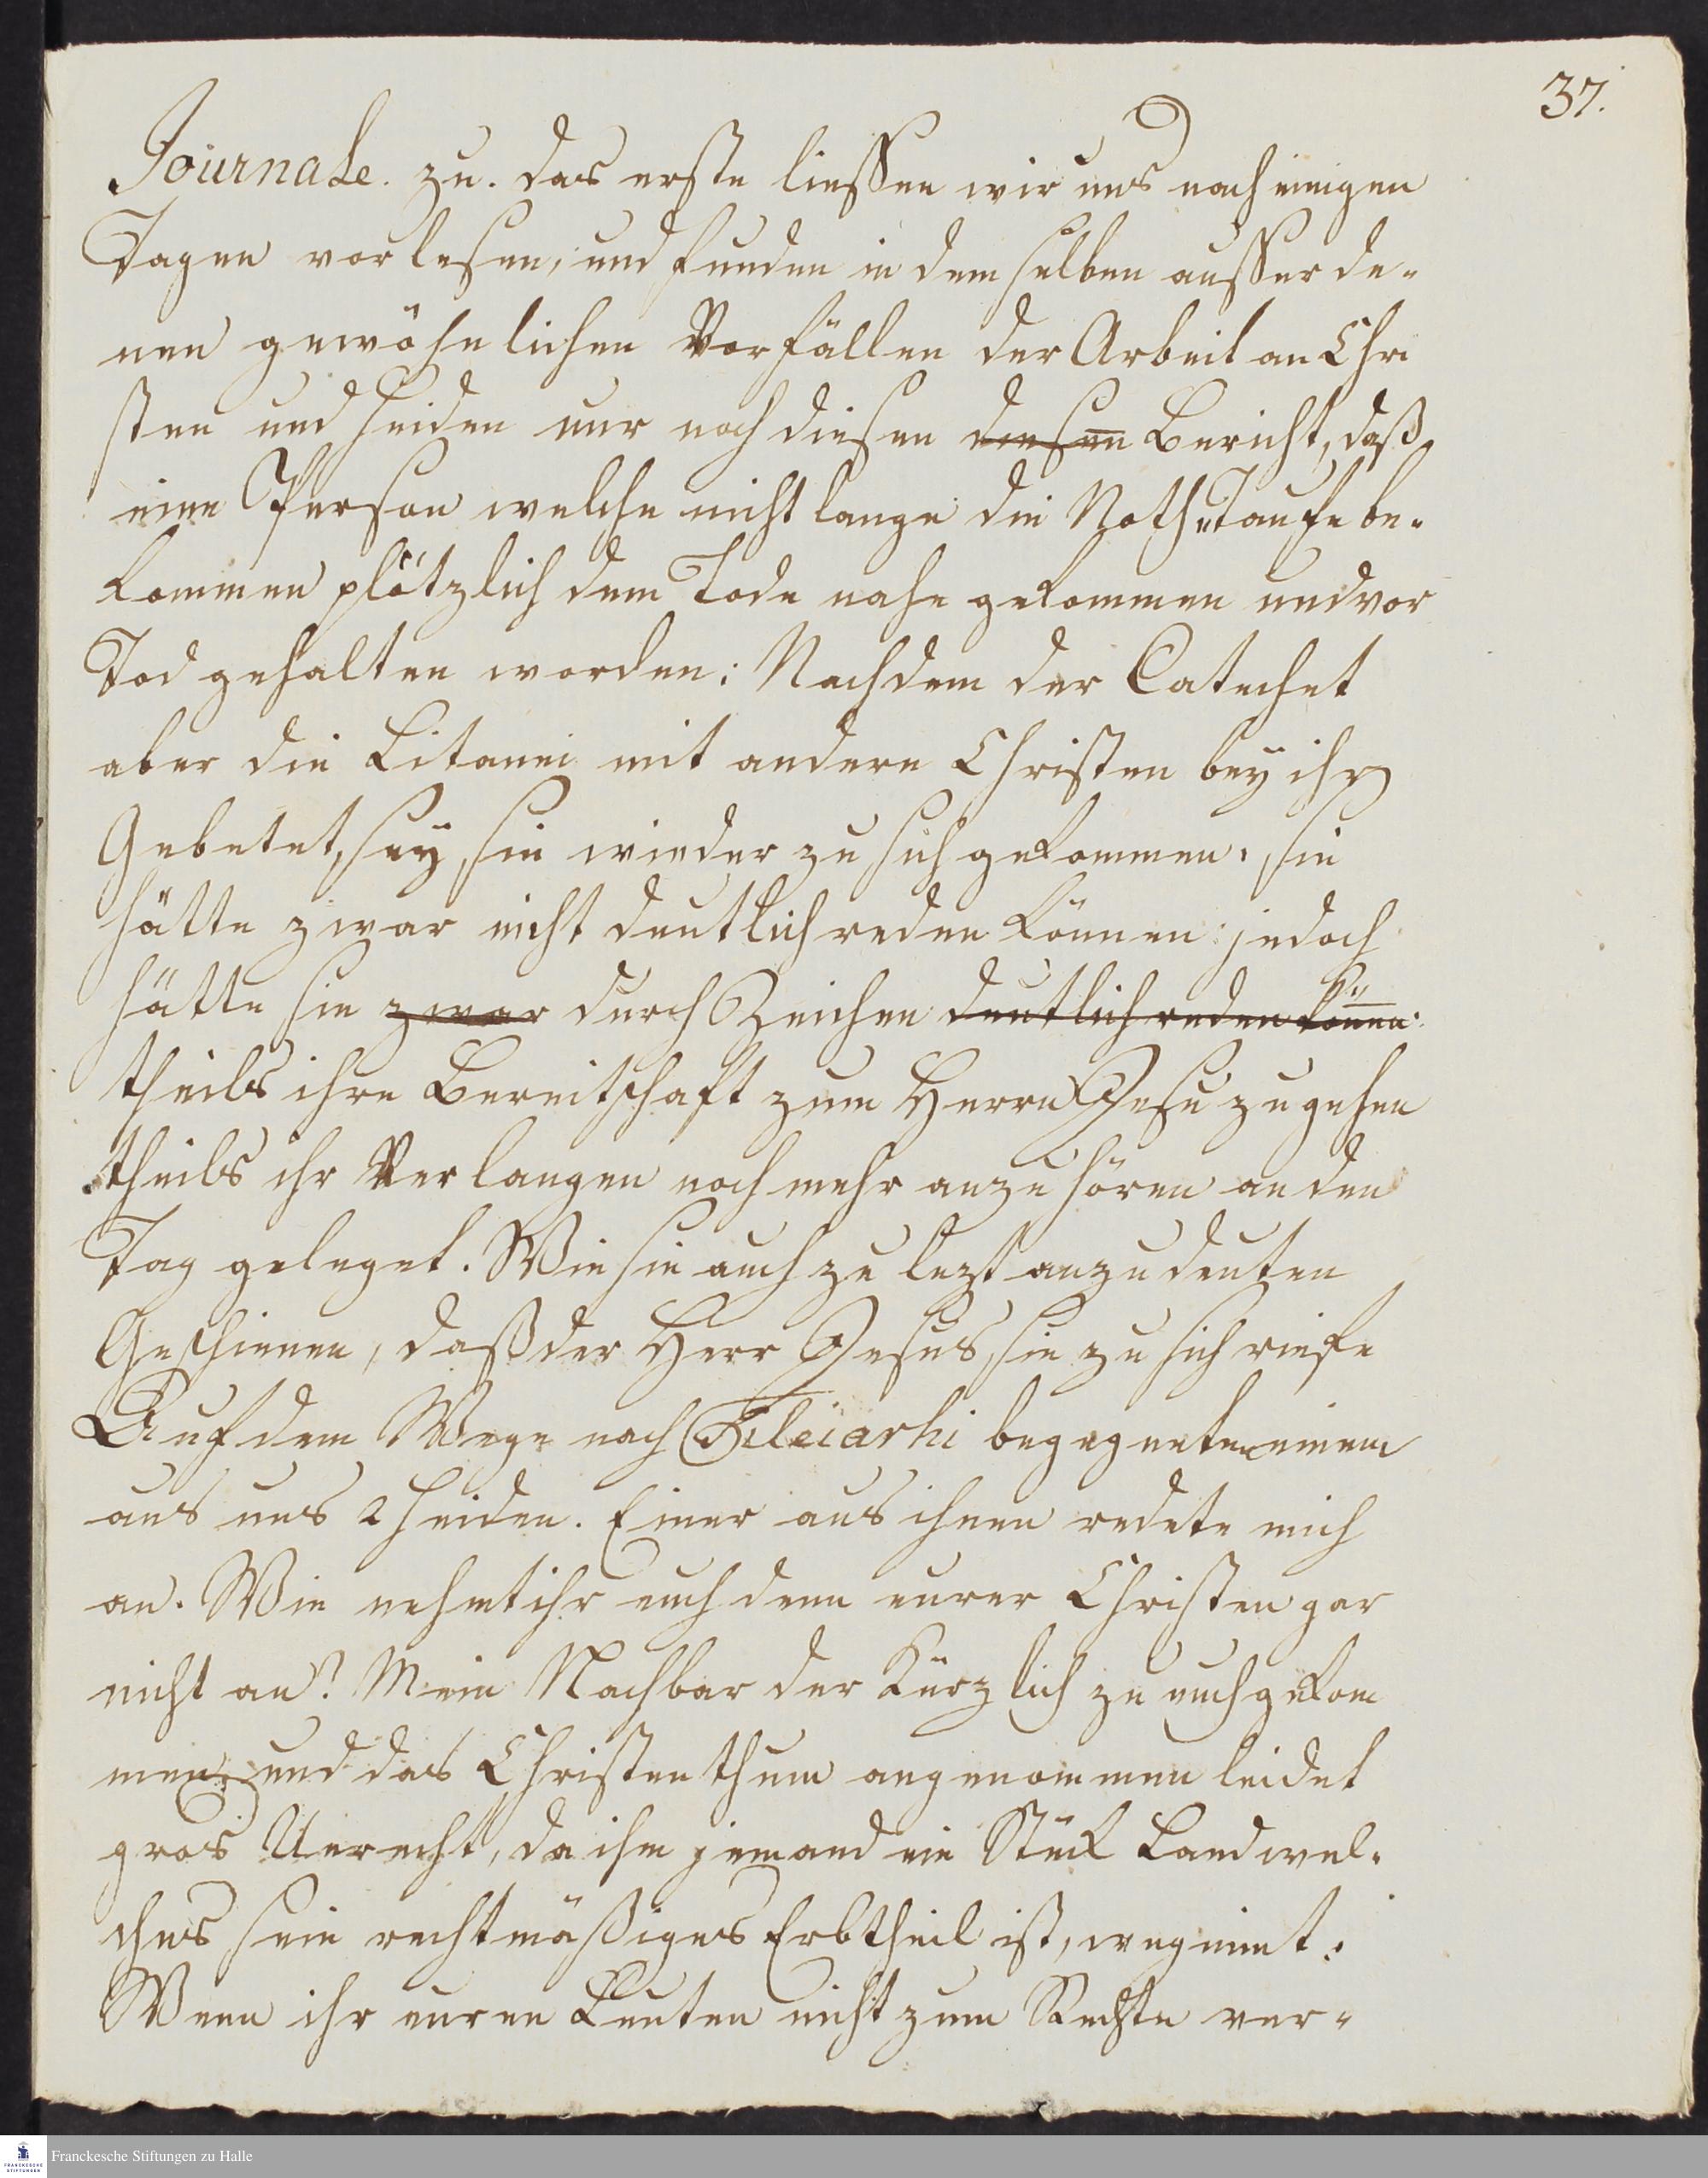 37.
Journale. zu. das erste liessen wir uns nach einigen
Tagen vorlesen, und funden in dem selben ausser de-
nen gewöhnlichen Vorfällen der Arbeit an Chri
sten und Heiden nur noch diesen diesen Bericht, daß
eine Person welche nicht lange die Noth-Taufe be-
kommen plötzlich dem Tode nahe gekommen und vor
Tod gehalten worden: Nachdem der Catechet
aber die Litanei mit andern Christen bey ihr
Gebetet, sey sie wieder zu sich gekommen. sie
hätte zwar nicht deutlich reden können: jedoch
hätte sie zwar durch Zeichen deutlich reden können:
theils ihre Bereitschaft zum Herrn Jesu zu gehen
theils ihr Verlangen noch mehr anzuhören an den
Tag geleget. Wie sie auch zu lezt anzudeuten
Geschienen, daß der Herr Jesus, sie zu sich riefe
Auf dem Wege nach Tileiarhi begegneten einem
aus uns 2 Heiden. Einer aus ihnen redete mich
an. Wie nehmt ihr euch denn eurer Christen gar
nicht an? Mein Nachbar der kürzlich zu euch gekom
men und das Christenthum angenommen leidet
gros Unrecht, da ihm jemand ein Stück Land wel-
ches sein rechtmäßiges Erbtheil ist, wegnimt.
Wenn ihr euren Leuten nicht zum Rechte ver-
Franckesche Stiftungen zu Halle